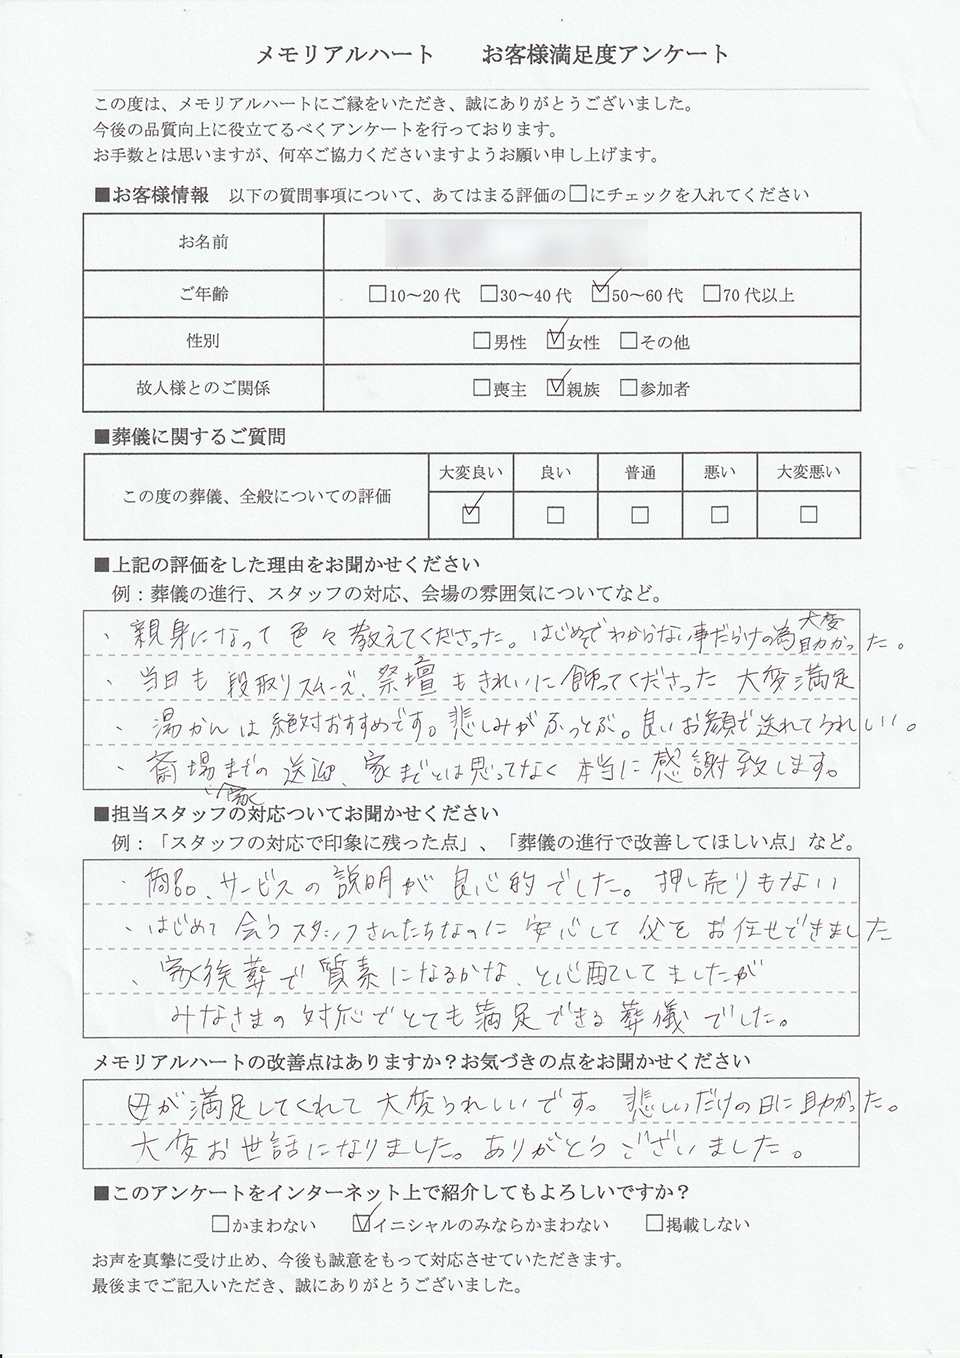 メモリアルハート　　お客様満足度アンケート
この度は、メモリアルハートにご縁をいただき、誠にありがとうございました。
今後の品質向上に役立てるべくアンケートを行っております。
お手数とは思いますが、何卒ご協力くださいますようお願い申し上げます。
■お客様情報　以下の質問事項について、あてはまる評価の□にチェックを入れてください
お名前
ご年齢　□10～20代　□30～40代　☑50～60代　□70代以上
性別　□男性　☑女性　□その他
故人様とのご関係　□喪主　☑親族　□参加者
■葬儀に関するご質問
大変良い　良い　普通　悪い　大変悪い
この度の葬儀、全般についての評価　☑　□　□　□　□
■上記の評価をした理由をお聞かせください
例：葬儀の進行、スタッフの対応、会場の雰囲気についてなど。
、親身になって色々教えてくださった。はじめてでわからない事だらけの為大変助かった。
、当日も段取りスムーズ、祭壇もきれいに飾ってくださった 大変満足
・湯かんは絶対おすすめです。悲しみがふっとぶ。良いお顔で送れてうれしい。
・斎場までの送迎、家までとは思ってなく本当に感謝致します。
■担当スタッフの対応ついてお聞かせください
例：「スタッフの対応で印象に残った点」、「葬儀の進行で改善してほしい点」など。
・商品、サービスの説明が良心的でした。押し売りもない
、はじめて会うスタッフさんたちなのに安心して父をお任せできました
、家族葬で質素になるかな、と心配してましたが
みなさまの対応でとても満足できる葬儀でした。
メモリアルハートの改善点はありますか？お気づきの点をお聞かせください
母が満足してくれて大変うれしいです。悲しいだけの日に助かった。
大変お世話になりました。ありがとうございました。
■このアンケートをインターネット上で紹介してもよろしいですか？
□かまわない　☑イニシャルのみならかまわない　□掲載しない
お声を真摯に受け止め、今後も誠意をもって対応させていただきます。
最後までご記入いただき、誠にありがとうございました。